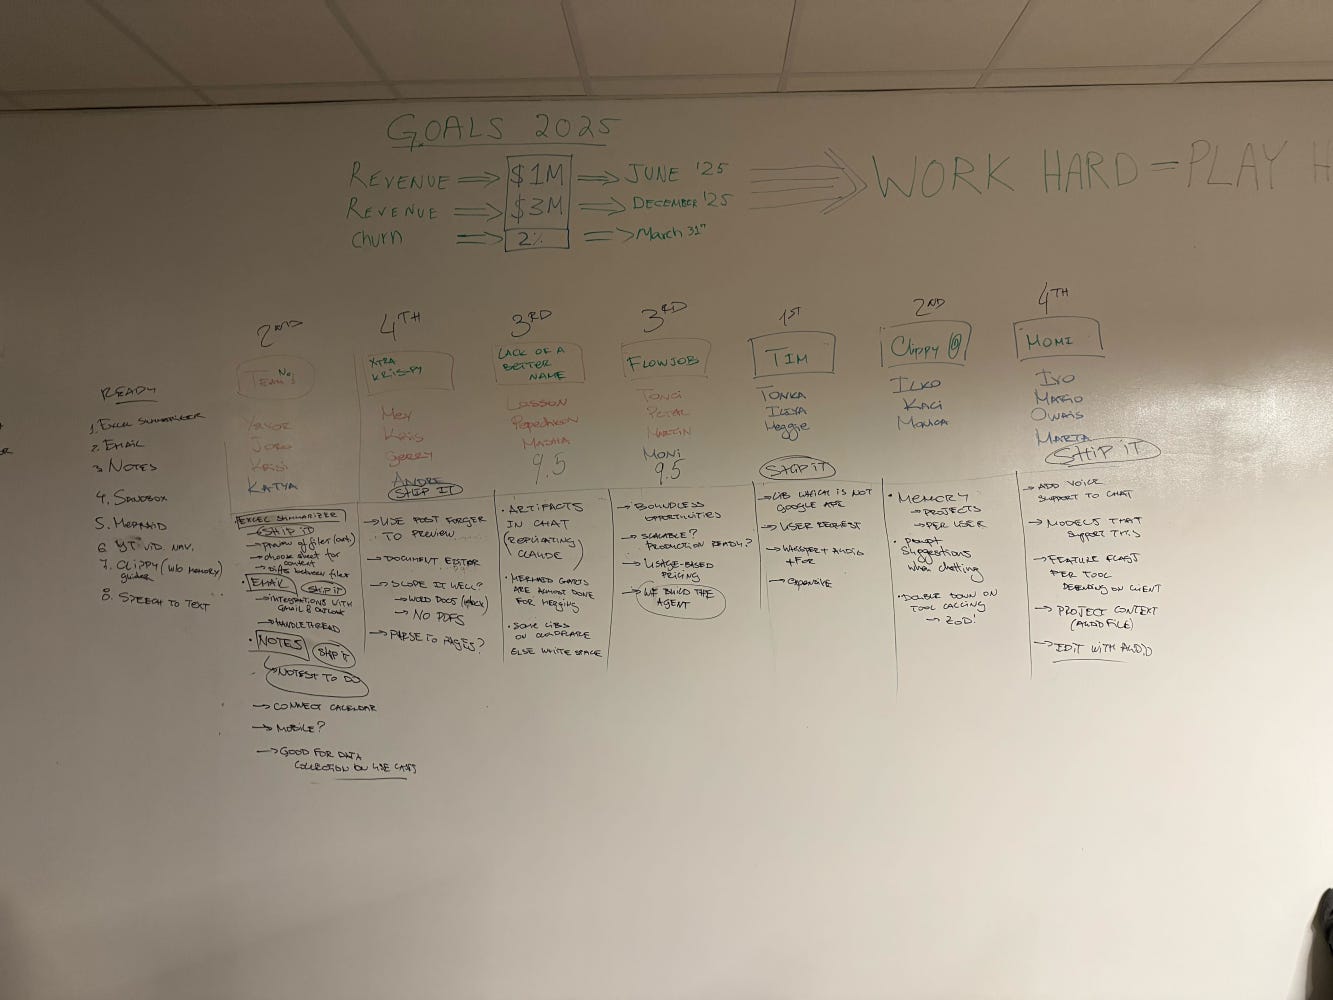 GOALS 2025
REVENUE => $1M => JUNE '25
REVENUE => $3M => DECEMBER '25
Churn => 2% => March 31st
WORK HARD = PLAY H
READY
1. EXCEL SUMMARIZER
2. EMAIL
3. NOTES
4. SANDBOX
5. MERMAID
6. YT VID. NAV.
7. CLIPPY (W/O MEMORY)
8. SPEECH TO TEXT
2ND
TEAM No1
YAVOR
JORO
KRISI
KATYA
EXCEL SUMMARIZER
SHIP IT
→ choose sheet for
context
→ Diffs between files
• EMAIL SHIP IT
→ INTEGRATIONS WITH
Gmail & OUTLOOK
→ HANDLE THREAD
• NOTES SHIP IT
→ NOTES TO DO
→ CONNECT CALENDAR
→ MOBILE?
→ GOOD FOR DATA
COLLECTION ON USE CASES
4TH
XTRA
KRISPY
Mey
Kris
Gerry
ANDRE
SHIP IT
→ USE POST FORGER
TO PREVIEW
→ DOCUMENT EDITOR
→ SCOPE IT WELL?
→ WORD DOCS
→ NO PDFS
→ PARSE TO PAGES?
3RD
LACK OF A
BETTER
NAME
MASHA
9.5
• ARTIFACTS
IN CHAT
(REPLICATING
CLAUDE)
• MERMAID CHARTS
ARE ALMOST DONE
FOR MERGING
• SOME LIBS
ON CLOUDFLARE
ELSE WHITE SPACE
3RD
FLOWJOB
TONCI
PETAR
MARTIN
MONI
9.5
→ BOUNDLESS
OPPORTUNITIES
→ SCALABLE?
PRODUCTION READY?
→ USAGE-BASED
PRICING
→ WE BUILD THE
AGENT
1ST
TIM
TONKA
ILIYA
Meggie
SHIP IT
→ LIB WHICH IS NOT
GOOGLE API
→ USER REQUEST
→ expensive
2ND
Clippy
ILKO
KACI
MONICA
• MEMORY
→ PROJECTS
→ PER USER
• prompt
suggestions
when chatting
• DOUBLE DOWN ON
TOOL CALLING
→ ZOD!
4TH
MOMI
IVO
MARIO
OWAIS
MARTA
SHIP IT
→ ADD VOICE
SUPPORT TO CHAT
→ MODELS THAT
SUPPORT THIS
→ FEATURE FLAGS
PER TOOL
DEPENDING ON CLIENT
→ PROJECT CONTEXT
(AUDIO FILE)
→ EDIT WITH AUDIO